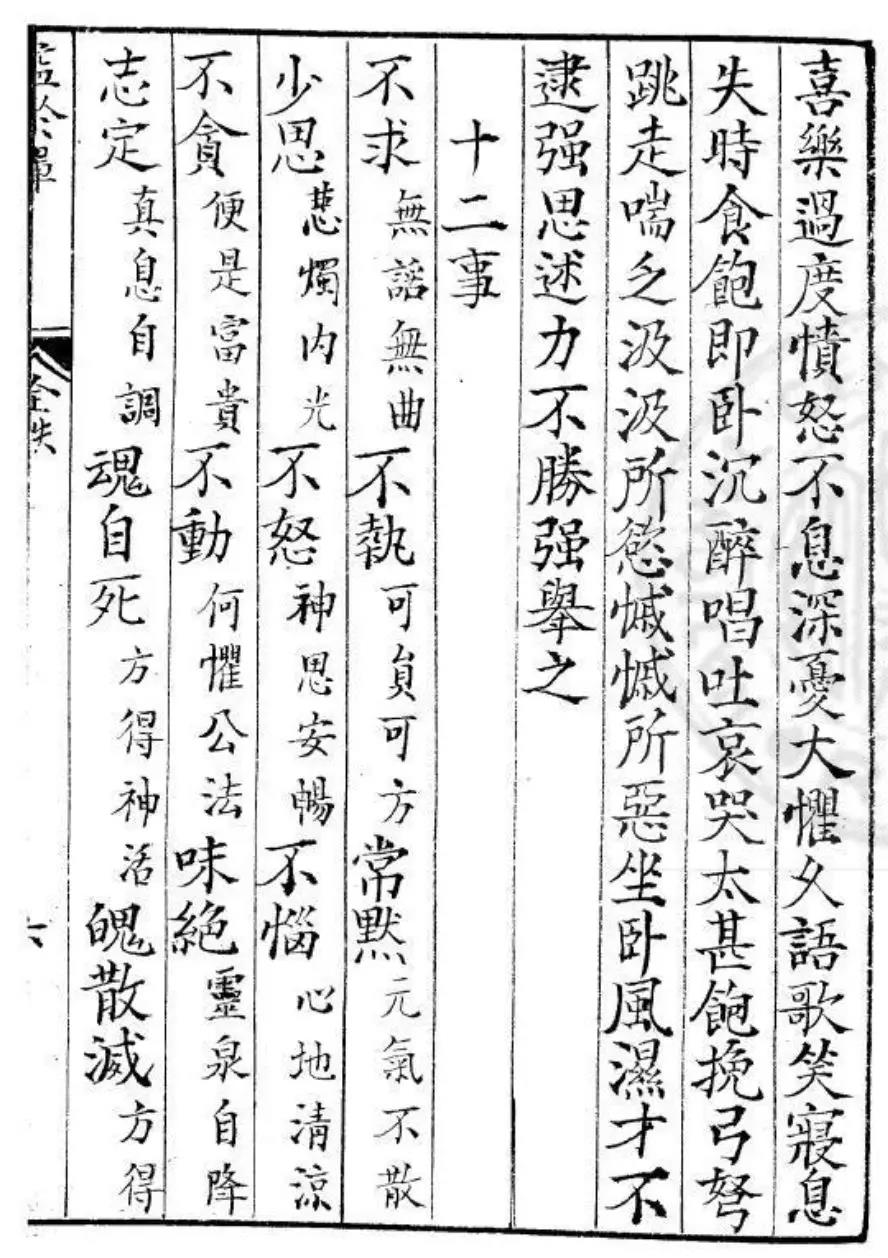 喜樂過度憤怒不息深憂大懼久語歌笑寢息
失時食飽即卧沉醉唱吐哀哭太甚飽挽弓弩
跳走喘乏汲汲所慾慽慽所惡坐卧風濕才不
逮强思述力不勝强舉之
十二事
不求無諂無曲不執可貟可方常默元氣不散
少思慧燭内光不怒神思安暢不惱心地清涼
不貪便是富貴不動何懼公法味絶靈泉自降
志定真息自調魂自死方得神活魄散滅方得
全帙
六